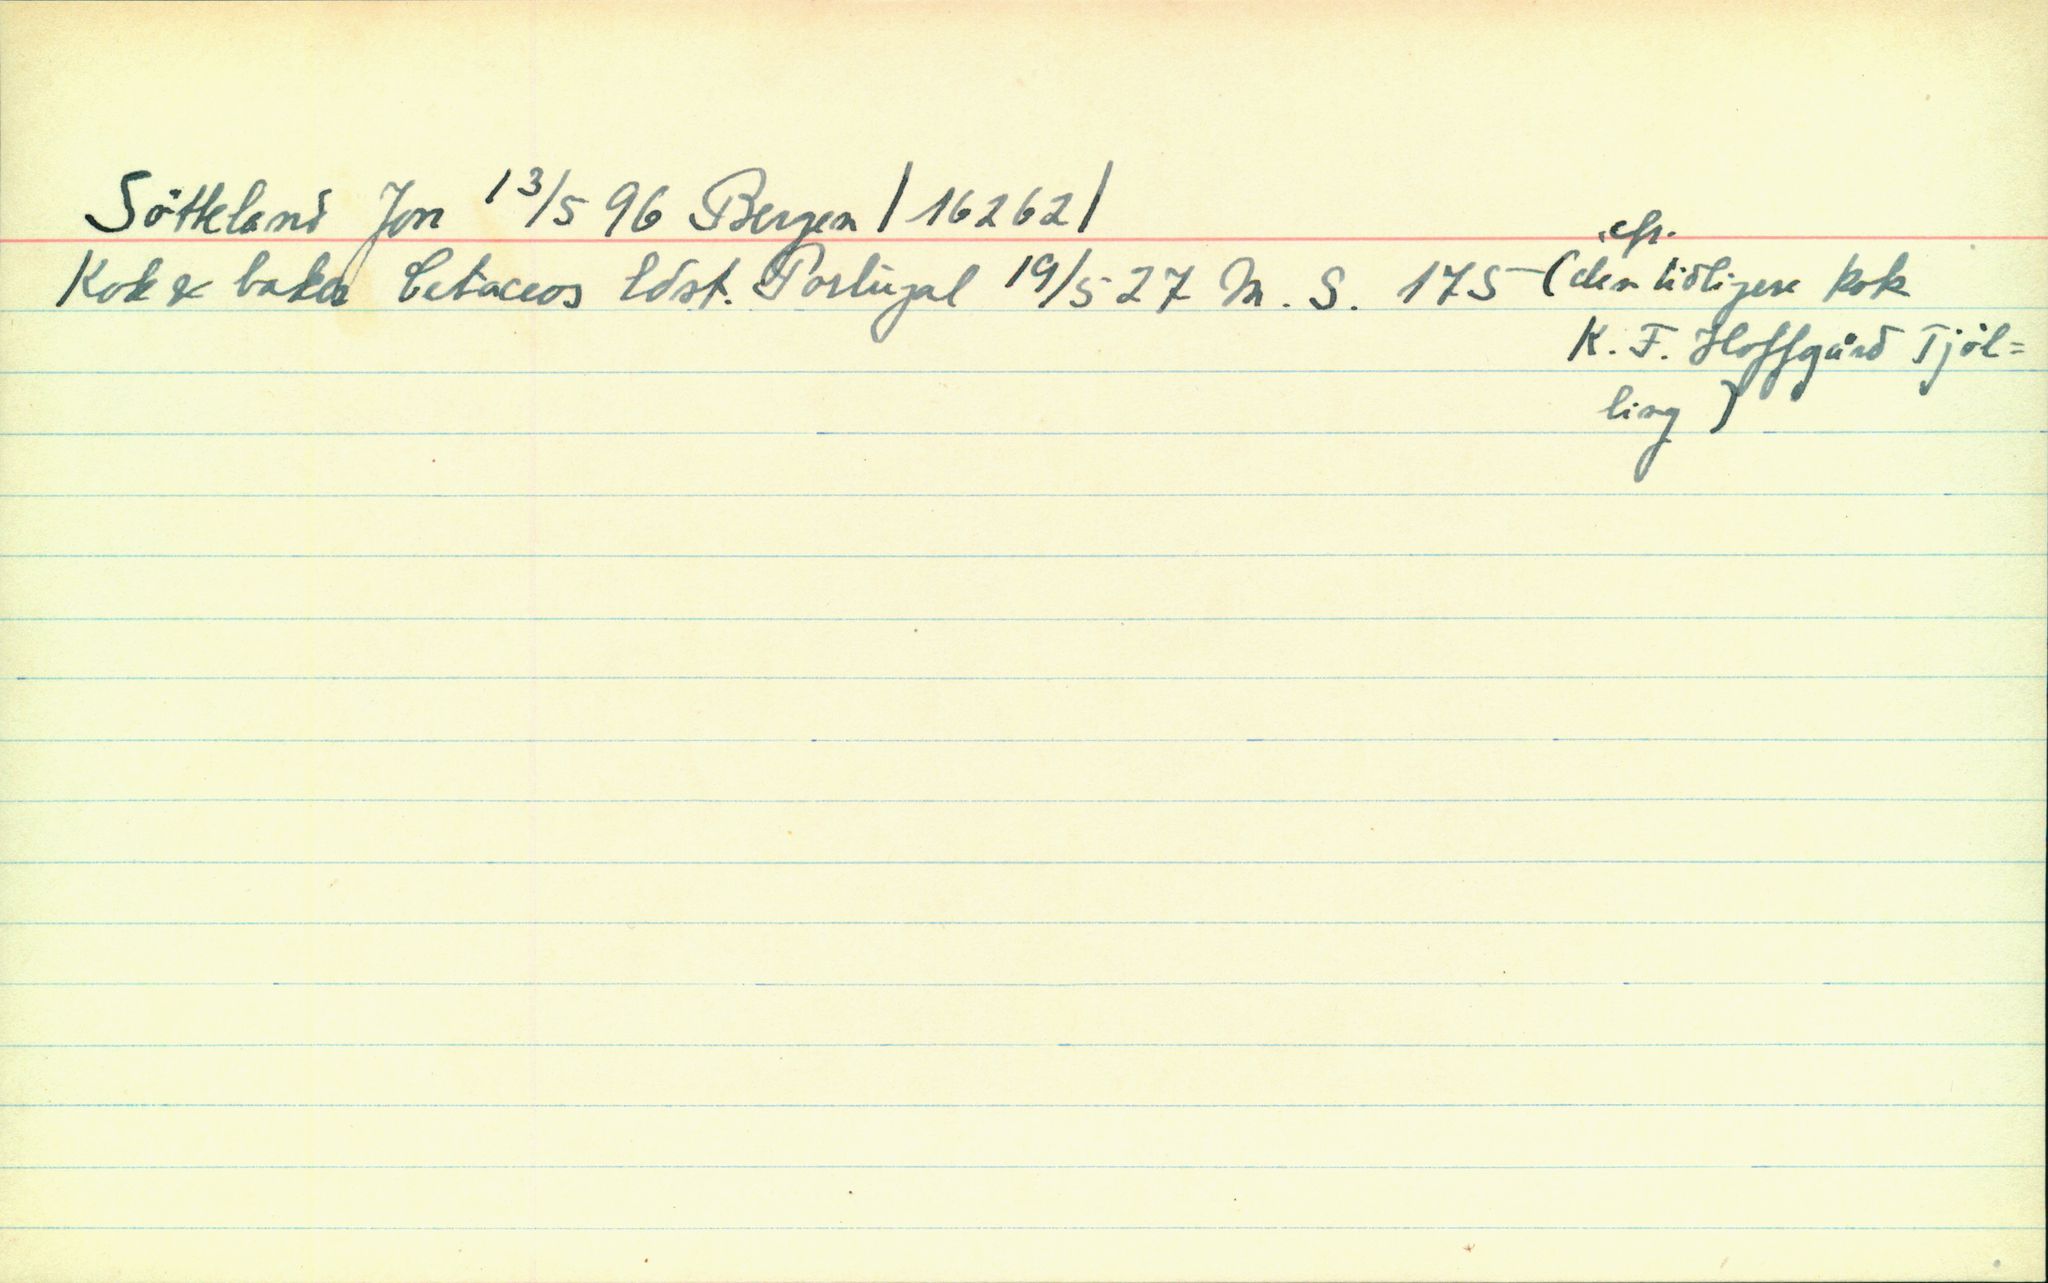 Sötteland Jon 13/5 96 Bergen | 16262 |
Kok & baker Cetaceos löst. Portugal 19/5 27 M. S. 175 - (den tidligere kok
efr.
K. F. Hoffgård Tjöl=
ling )